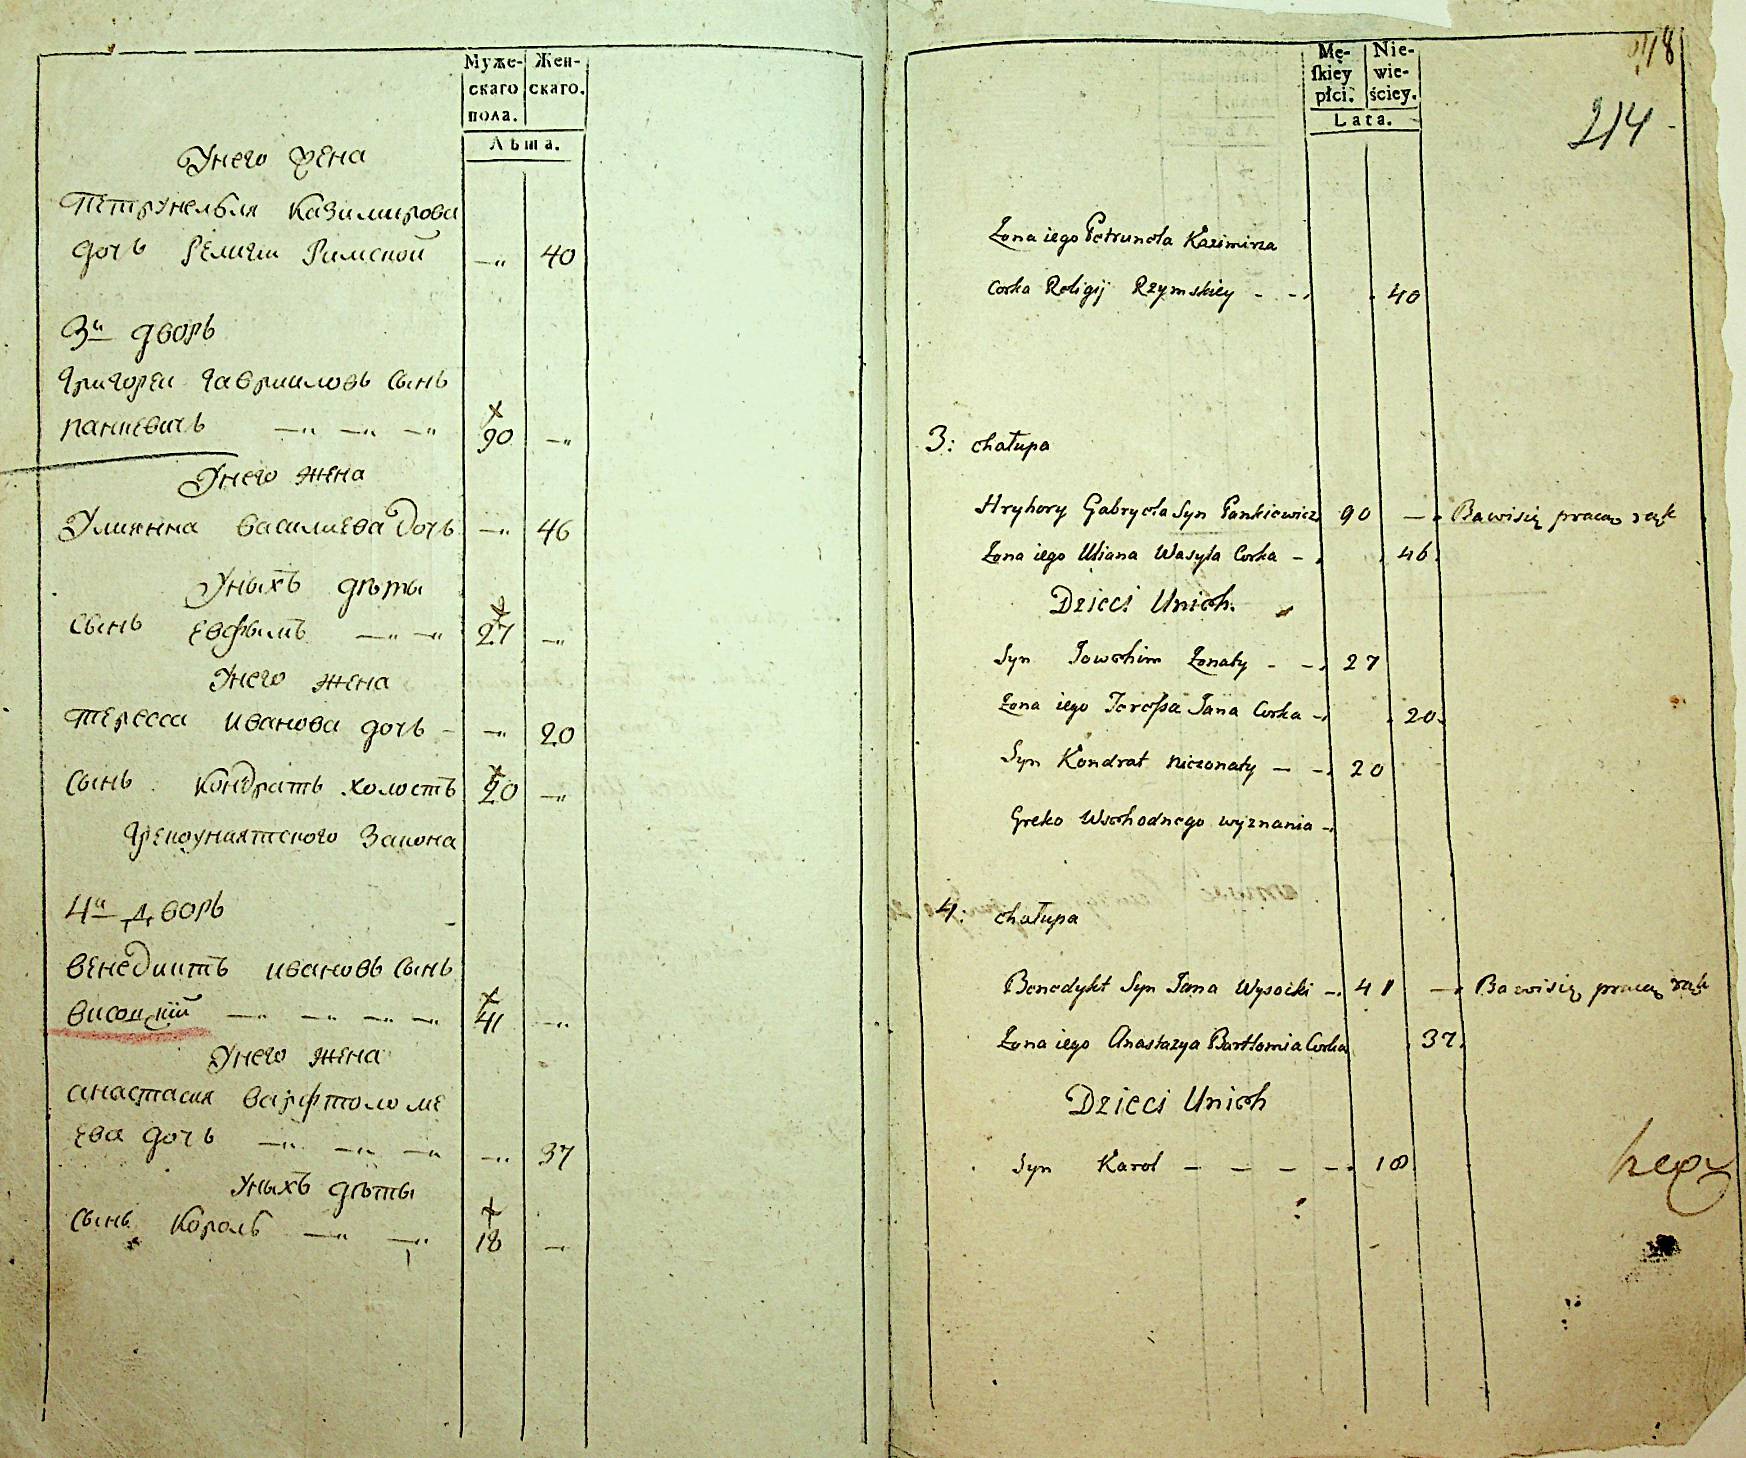 Муже-
скаго
пола.
Жен-
скаго.
Лѣта.
Унего жена
Петрунелъля Казимирова
дочь Религии Римской —„ 40
3й дворъ
Григореи Гавриловъ сынъ
Панкевичъ —„ —„ —„ 90 —„
Унего жена
Улиянна Василиева дочь —„ 46
Уныхъ дѣты
Сынъ Евфимъ —„ —„ 27 —„
Унего жена
Тересса Иванова дочь - —„ 20
Сынъ Кондратъ холостъ 20 —„
Грекоуниятского Закона
4й дворъ
Венедиктъ Ивановъ сынъ
Високий —„ —„ —„ —„ 41 —„
Унего жена
Анастасия Варфтоломе
ева дочь —„ —„ —„ —„ 37
Уныхъ дѣты
Сынъ Король —„ —„ 18 —„
Mę-
ſkiey
płci.
Nie-
wie-
ściey.
Lata.
214
Żona iego Petrunela Kazimirza
Corka Religij Rzymskiey - - - 40
3: chałupa
Hryhory Gabryela Syn Pankiewicz 90 — Bawisię pracą rąk
Żona iego Uliana Wasyla Corka - 46
Dzieci Unich.
Syn Jowchim Żonaty - - 27
Żona iego Teressa Jana Corka - 20
Syn Kondrat nieżonaty - - 20
Greko Wschodnego wyznania -
4: chałupa
Benedykt Syn Jana Wysocki - 41 — Bawisię pracą rąk
Żona iego Anastazya Bartłomia Corka 37
Dzieci Unich
Syn Karol - - - - 18